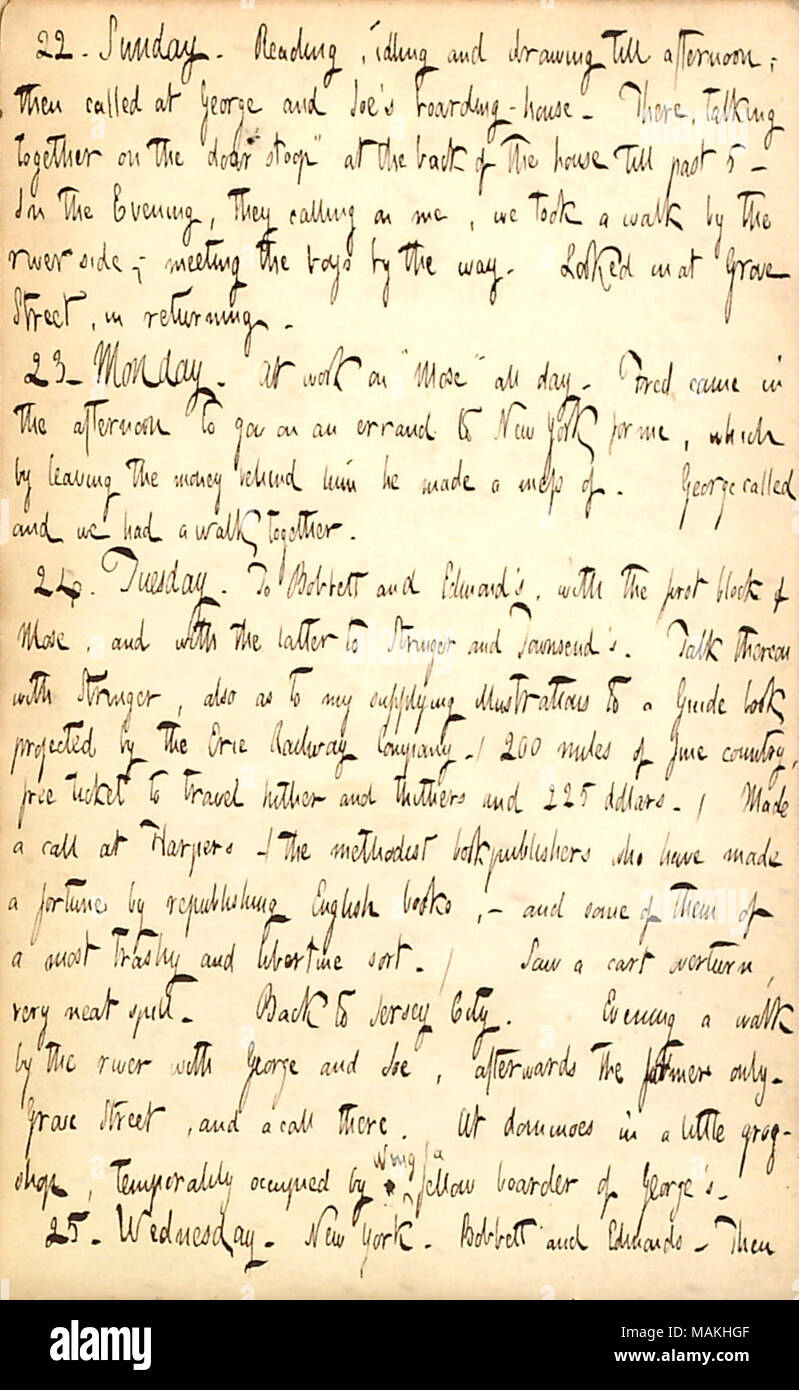 22. Sunday. Reading, idling and drawing till afternoon;
then called at George and Joe's boarding-house. There, talking
together on the door "stoop" at the back of the house till past 5 –
In the Evening, they calling on me, we took a walk by the
river side; – meeting the boys by the way. Looked in at Grove
Street, in returning.
23. Monday. At work on "Mose" all day. Fred came in
the afternoon to go on an errand to New York for me, which
by leaving the money behind him he made a mess of. George called
and we had a walk together.
24. Tuesday. To Bobbett and Edmond's, with the first block of
Mose, and with the latter to Stringer and Townsend's. Talk thereon
with Stringer, also as to my supplying illustrations to a Guide book
projected by the Erie Railway Company. ( 200 miles of fine country,
free ticket to travel hither and thithers and 225 dollars. ) Made
a call at Harpers ( the methodist bookpublishers who have made
a fortune by republishing English books, – and some of them of
a most trashy and libertine sort. ) Saw a cart overturn,
very neat spill. Back to Jersey City. Evening a walk
by the river with George and Joe, afterwards the former only.
Grove Street, and a call there. At dominoes in a little grog-
shop, temporalily occupied by Wing a fellow boarder of George's.
25. Wednesday. New York. Bobbett and Edmonds – Then
alamy
Image ID: MAKHGF
www.alamy.com